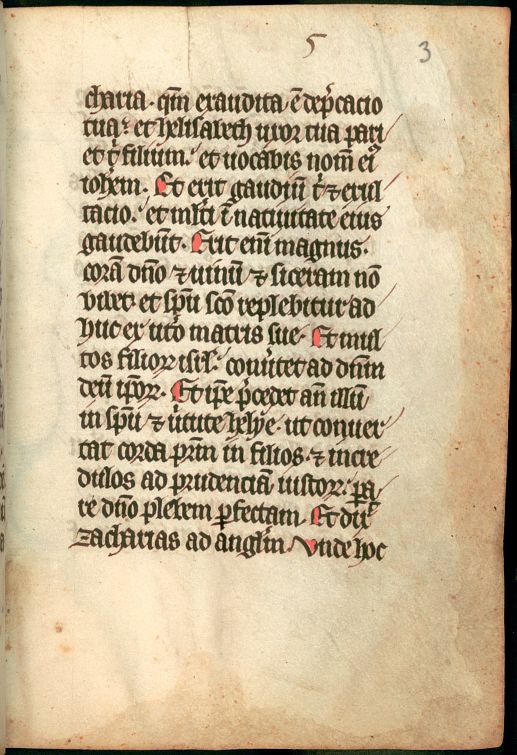 5
3
charia. qm̄ exaudita ē dep̄cacio
tua: et helisabeth uxor tua pari
et t̄ filium. et uocabis nom̄ eiꝰ
ioh̄em. Et erit gaudiū t̄ ⁊ exul
tacio. et ml̄ti ī natiuitate eius
gaudebūt. Erit eni͞ magnus.
corā dn̄o ⁊ uinū ⁊ siceram nō
bibet et sp̄u sc̄o replebitur ad
huc ex ut̄o matris sue. Et mul
tos filioꝝ isr̄l. conūtet ad dn̄m
deū ip̄oꝝ. Et ip̄e p̄cedet an̄ illū
in sp̄u ⁊ ūtute helye. ut conuer
tat corda pr̄m in filios. ⁊ incre
dulos ad prudenciā iustoꝝ. pa
re dn̄o plebem ꝑfectam. Et dix̄
zacharias ad angl̄m. Vnde hoc